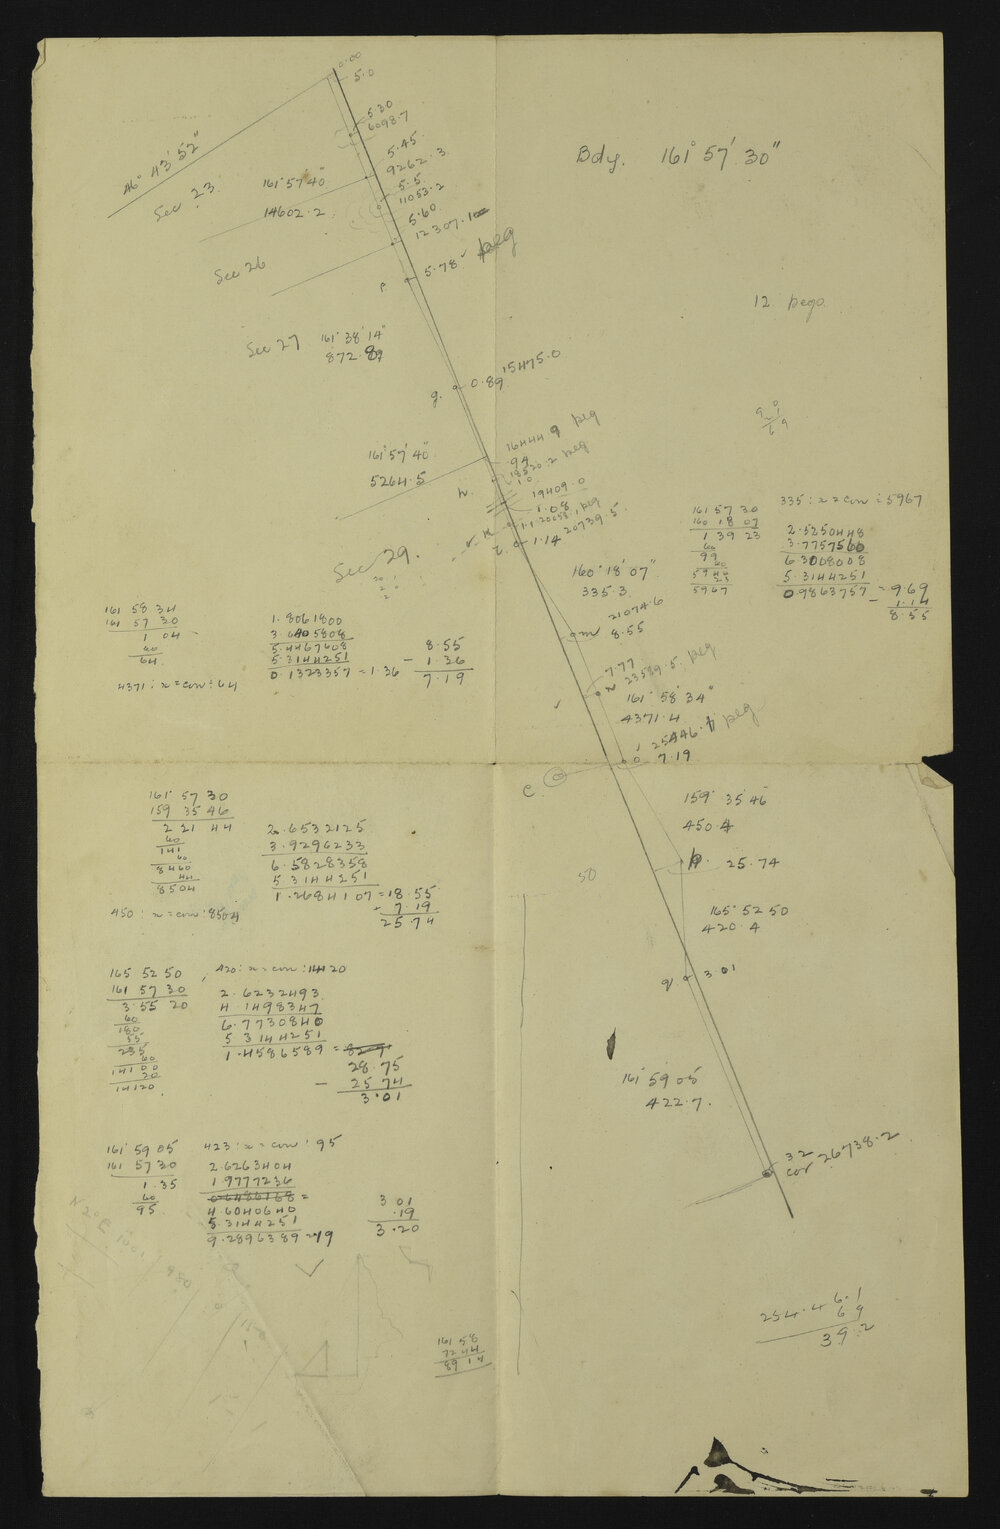 0.00
5.0
5.30
6098.7
46° 43' 52"
Sec 23.
5.45
9262.3
161° 57' 40"
14602.2
5.5
11053.2
5.60
12307.1
Bdy. 161° 57' 30"
Sec 26
5.78 peg
12 pegs
Sec 27
161° 38' 14"
872.8
g. 0.89 15475.0
161° 57' 40"
5264.5
16444 9 peg
.94
18520.2 peg
1.0
h.
19409.0
1.08
1.1 20653.1 peg
1.14 20739.5
Sec 29.
160° 18' 07"
335.3
161 57 30
160 18 07
1 39 23
60
99
60
5940
23
5967
335 : x = con : 5967
2.5250448
3.7757560
6.3008008
5.3144251
0.9863757 = 969
- 1.14
8.55
161 58 34
161 57 30
1 04
60
64
4371 : x = con : 64
1.8061800
3.6405808
5.4467608
5.3144251
0.1323357 = 1.36
8.55
- 1.36
7.19
m 21074.6
8.55
7.77
n 23589.5 peg
161° 58' 34"
4371.4
o 25446.1 peg
7.19
C
159° 35' 46
450.4
p. 25.74
50
161° 57 30
159 35 46
2 21 44
60
141
60
8460
44
8504
450 : x = con : 8504
2.6532125
3.9296233
6.5828358
5.3144251
1.2684107 = 18.55
+ 7.19
25.74
165° 52 50
420.4
q 3.01
165 52 50
161 57 30
3.55 20
60
180
55
235
60
14100
20
14120
420 : x = con : 14120
2.6232493
4.1498347
6.7730840
5.3144251
1.4586589 = 
28.75
- 25 74
3.01
161° 59 05
422.7.
161° 59 05
161 57 30
1.35
60
95
423 : x = con : 95
2.6263404
1.9777236
4.6040640
5.3144251
9.2896389 = 19
3 01
.19
3.20
32
cor 26738.2
N 2° E.
161 58
72 44
89 14
254.46.1
69
39.2